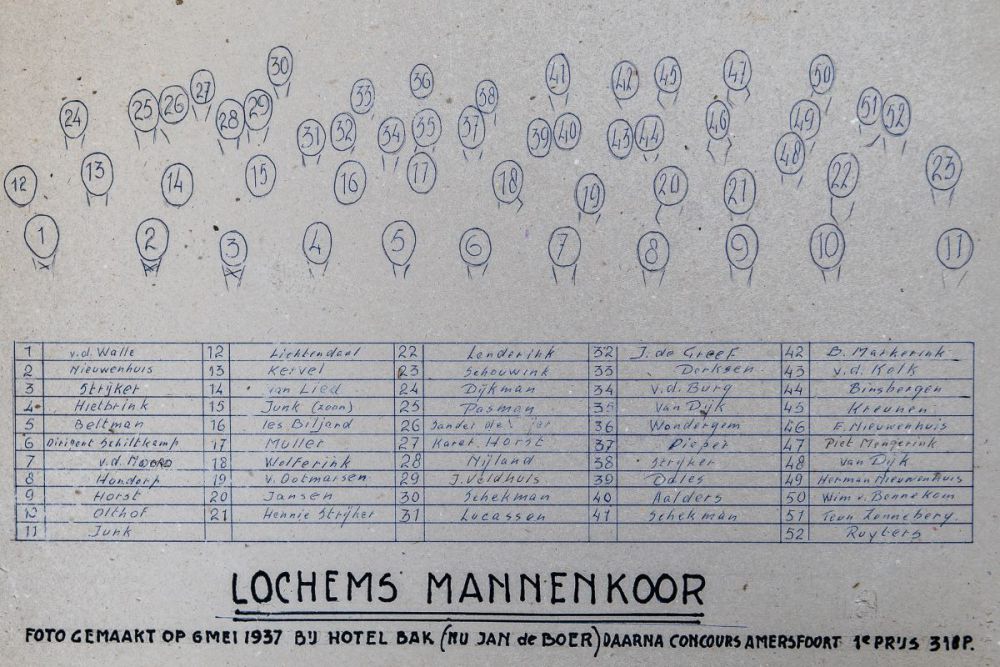 30 41
36 42 45 47 50
27 33 38
25 26 29 51 52
24 28 35 37 46 49
31 32 34 39 40 43 44
48
13 15 17 23
12 14 16 18 19 20 21 22
1 2 3 4 5 6 7 8 9 10 11
1 v.d. Walle 12 Lichtendaal 22 Lenderink 32 J. de Greef 42 B. Markerink
2 Nieuwenhuis 13 Kervel 23 Schouwink 33 Derksen 43 v.d. Kolk
3 Strijker 14 van Lied 24 Dijkman 34 v.d. Burg 44 Binsbergen
4 Hietbrink 15 Junk (zoon) 25 Pasman 35 Van Dijk 45 Kreunen
5 Beltman 16 les Biljard 26 Sander 36 Wondergem 46 E. Nieuwenhuis
6 Dirigent Schiltkamp 17 Muller 27 Karel Horst 37 Dieper 47 Piet Mengerink
7 v.d. Noord 18 Wolferink 28 Nijland 38 Strijker 48 van Dijk
8 Hondorp 19 v. Ootmarsen 29 J. Veldhuis 39 Odles 49 Herman Nieuwenhuis
9 Horst 20 Jansen 30 Schekman 40 Aalders 50 Wim v. Bennekom
10 Olthof 21 Hennie Strijker 31 Lucassen 41 Schekman 51 Teun Zonneberg
11 Junk 52 Ruyters
LOCHEMS MANNENKOOR
FOTO GEMAAKT OP 6 MEI 1937 BIJ HOTEL BAK (NU JAN de BOER) DAARNA CONCOURS AMERSFOORT 1e PRIJS 318 P.